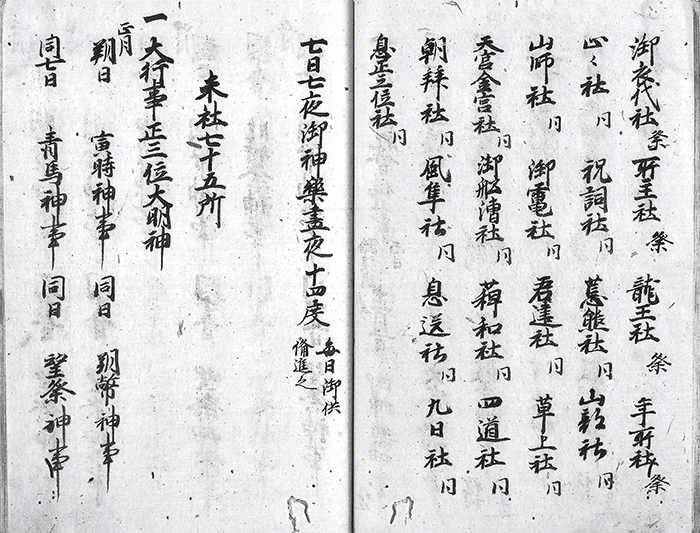 御衣代社 祭 所王社 祭 龍王社 祭 年所社 祭
山々社 同 祝詞社 同 荒熊社 同 山部社 同
山師社 同 御電社 同 君達社 同 草上社 同
天宮金宮社 同 御船漕社 同 和社 同 四道社 同
朝拜社 同 風隼社 同 息送社 同 九日社 同
息正三位社 同
七日七夜御神樂晝夜十四度 毎日御供
備進之
末社七十五所
一大行事正三位大明神
正月
朔日 寅時神事 同日 朔幣神事
同七日 青馬神事 同日 望祭神事